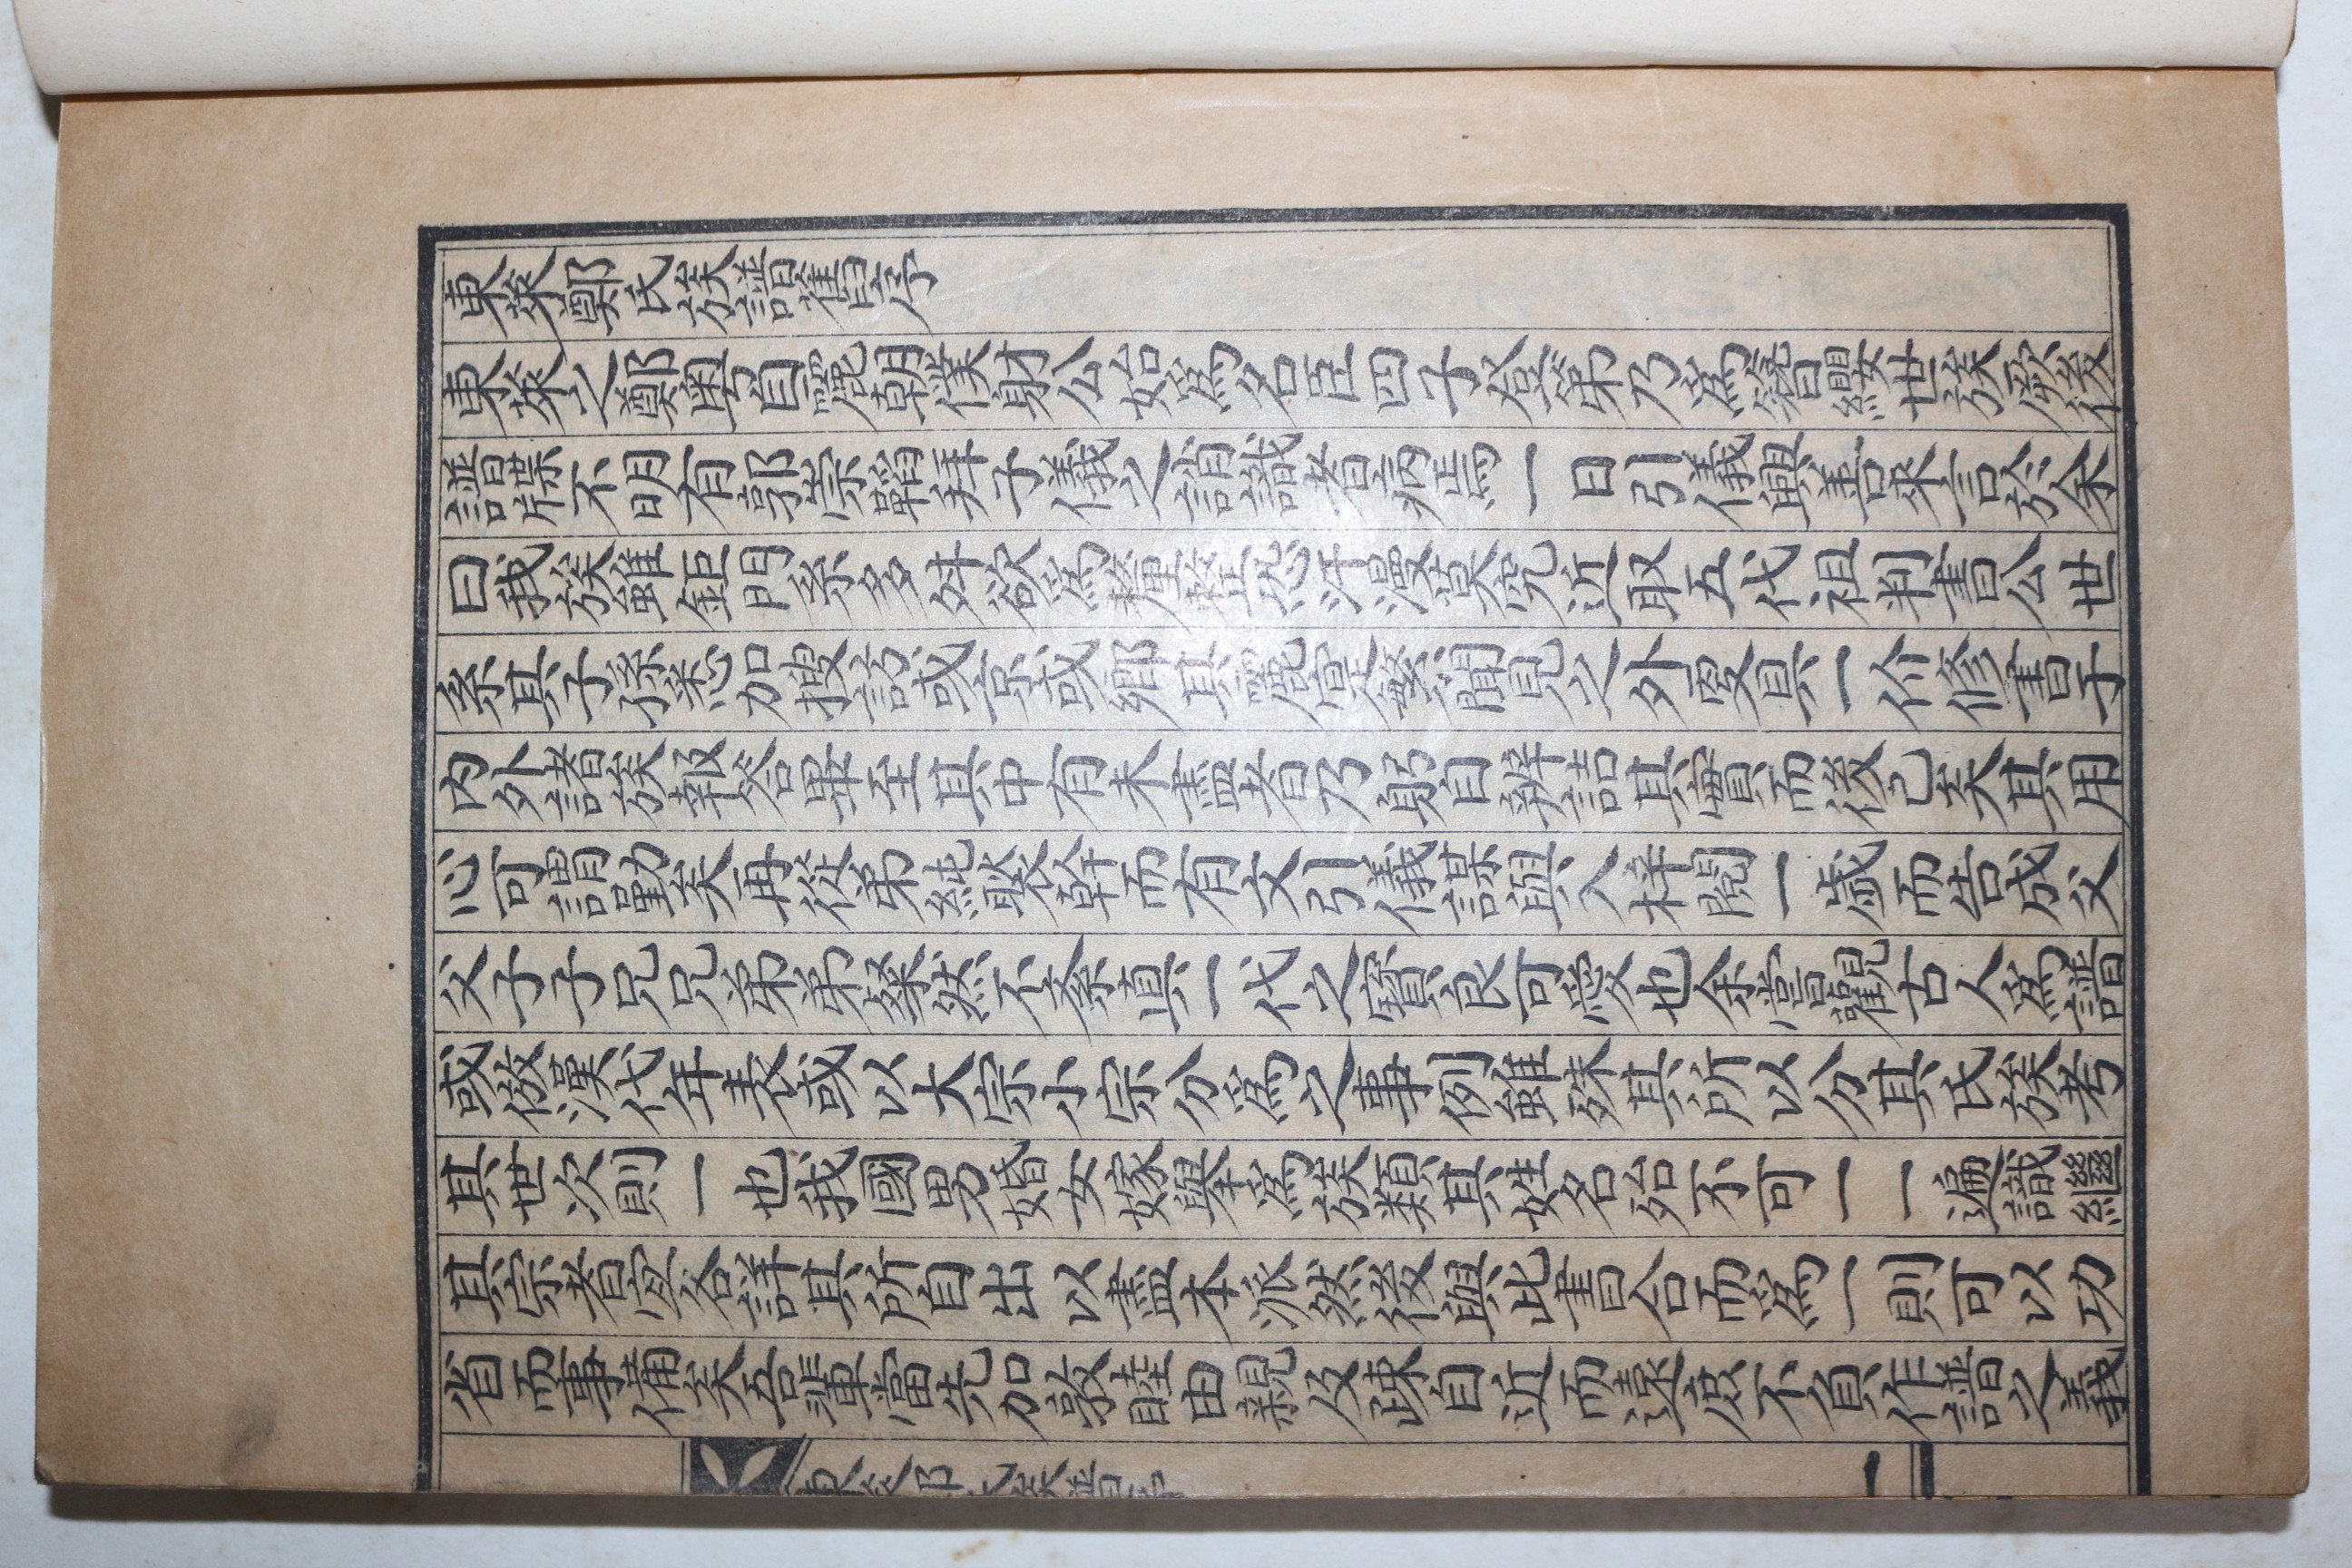 東萊鄭氏族譜舊序
東萊之鄭奧自麗朝僕射公始爲名臣四子登第乃爲簪纓世族厥後
譜牒不明有郭崇韜拜子儀之誚識者病焉一日引儀興善來言於余
曰我族雖鉅門系多舛欲爲釐整恐汗漫莫究近取五代祖判書公世
系其子孫悉加搜訪或京或鄕其麗寔繁聞見之外更具一介修書于
內外諸族報答畢至其中有未盡者乃躬自辨詰其實而後已矣其用
心可謂勤矣再從弟幹而有文引儀謀與入梓閱一歲而告成父
父子子兄兄弟弟粲然不紊眞一代之寶良可愛也余嘗觀古人爲譜
或倣漢代年表或以大宗小宗分爲之事例雖殊其所以分其氏族考
其世次則一也我國男婚女嫁擧爲族類其姓名殆不可一一遍識繼
其宗者宜各詳其所自出以盡本派然後與此書合而爲一則可以功
省而事備矣吾輩當先加敦睦由親及疎自近而遠庶不負作譜之義
東萊鄭氏族譜序 一